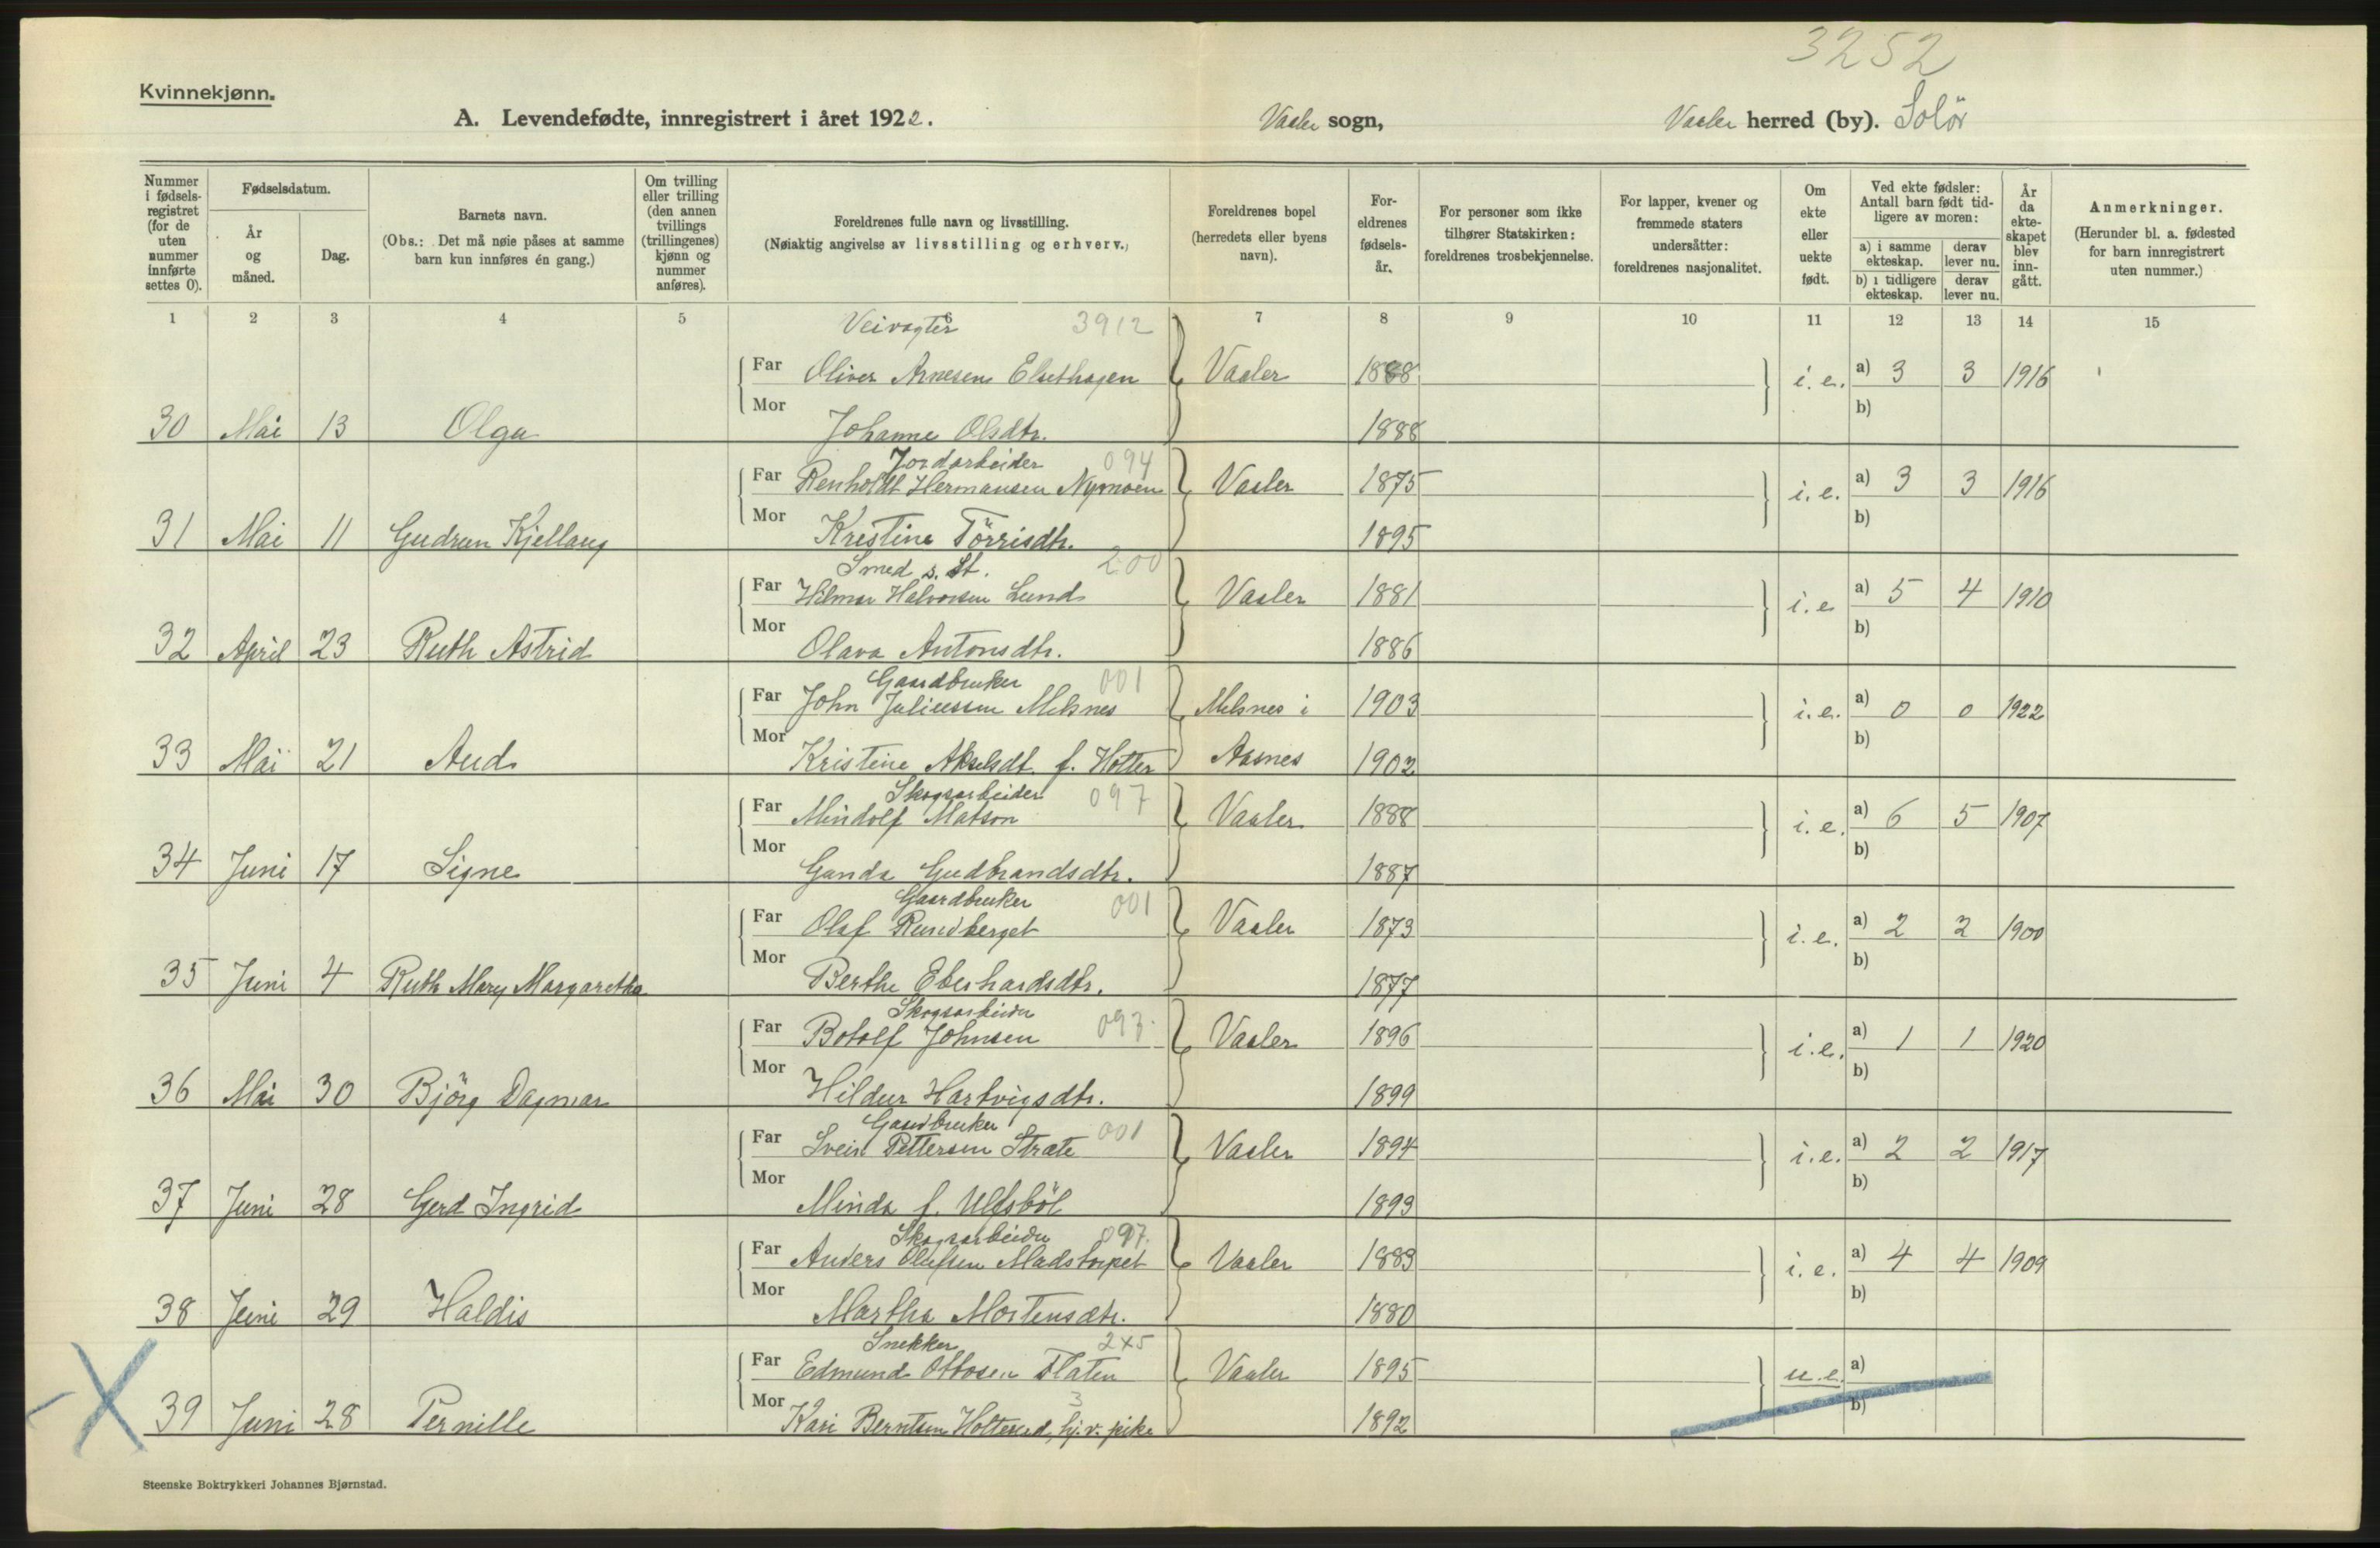 3252
Kvinnekjønn.
A. Levendefødte, innregistrert i året 1922. Vaaler sogn, Vaaler herred (by). Solör
Nummer i fødselsregistret (for de uten nummer innførte settes 0).
Fødselsdatum.
År og måned.
Dag.
Barnets navn.
(Obs.: Det må nøie påses at samme barn kun innføres én gang.)
Om tvilling eller trilling (den annen tvillings (trillingenes) kjønn og nummer anføres).
Foreldrenes fulle navn og livsstilling.
(Nøiaktig angivelse av livsstilling og erhverv.)
Foreldrenes bopel (herredets eller byens navn).
Foreldrenes fødselsår.
For personer som ikke tilhører Statskirken: foreldrenes trosbekjennelse.
For lapper, kvener og fremmede staters undersåtter: foreldrenes nasjonalitet.
Om ekte eller uekte født.
Ved ekte fødsler: Antall barn født tidligere av moren:
a) i samme ekteskap. derav lever nu.
b) i tidligere ekteskap. derav lever nu.
År da ekteskapet blev inngått.
Anmerkninger.
(Herunder bl. a. fødested for barn innregistrert uten nummer.)
1 2 3 4 5 6 7 8 9 10 11 12 13 14 15
Veivogter 3912
Far Oliver Arnesen Elsethagen Vaaler 1888 i. e. a) 3 3 1916
Mor b)
30 Mai 13 Olga Johanne Olsdtr. 1888
Jordarbeider 094
Far Renholdt Hermansen Nymoen Vaaler 1875 i. e. a) 3 3 1916
Mor b)
31 Mai 11 Gudrun Kjellaug Kristine Törrisdtr. 1895
Smed s. st. 200
Far Hilmar Halvorsen Lund Vaaler 1881 i. e a) 5 4 1910
Mor b)
32 April 23 Ruth Astrid Olava Antonsdtr. 1886
Gaardbruker 001
Far John Juliussen Melsnes Melsnes i 1903 i. e. a) 0 0 1922
Mor b)
33 Mai 21 Aud Kristine Akselsdt. f. Holter Aasnes 1902
Skogsarbeider 097
Far Mindolf Matson Vaaler 1888 i. e. a) 6 5 1907
Mor b)
34 Juni 17 Signe Gunda Gudbrandsdtr. 1887
Gaardbruker 001
Far Olaf Rundberget Vaaler 1873 i. e. a) 2 2 1900
Mor b)
35 Juni 4 Ruth Mary Margaretha Berthe Eberhardsdtr. 1877
Skogsarbeider 097
Far Botolf Johnsen Vaaler 1896 i. e. a) 1 1 1920
Mor b)
36 Mai 30 Björg Dagmar Hildur Hartvigsdtr. 1899
Gaardbruker 001
Far Svein Pettersen Stræte Vaaler 1894 i. e. a) 2 2 1917
Mor b)
37 Juni 28 Gerd Ingrid Minda f. Ulfsböl 1893
Skogsarbeider 097.
Far Anders Olufsen Madstorpet Vaaler 1883 i. e. a) 4 4 1909
Mor b)
38 Juni 29 Haldis Martha Mortensdtr. 1880
Snekker 245
Far Edmund Ottosen Flaten Vaaler 1895 u. e. a)
Mor 3 b)
39 Juni 28 Pernille Kari Berntsen hj. v. pike 1892
Steenske Boktrykkeri Johannes Bjørnstad.